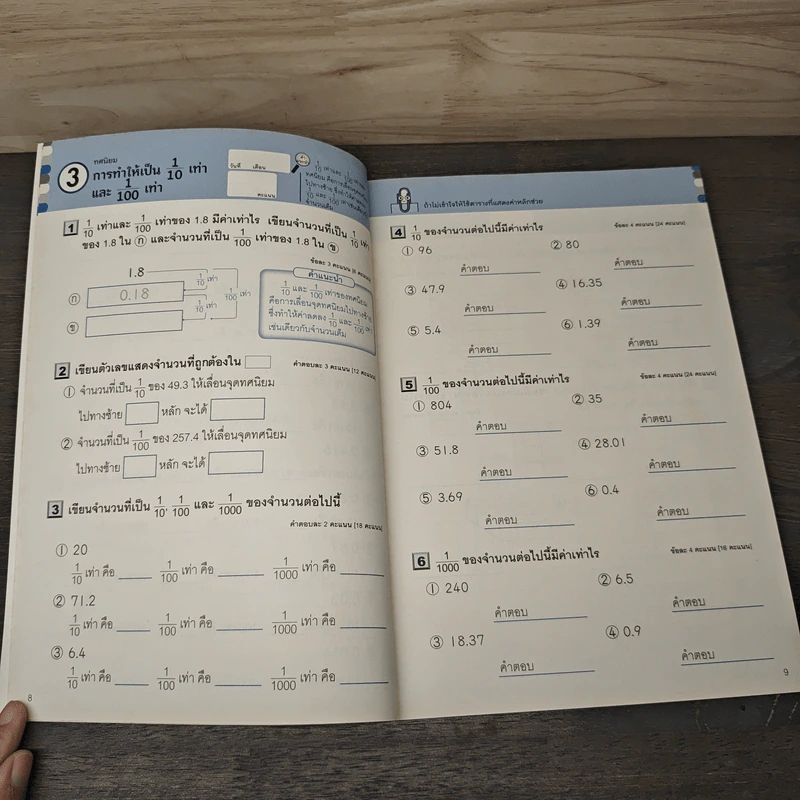 3
ทศนิยม
การทำให้เป็น 1/10 เท่า
และ 1/100 เท่า
วันที่ เดือน
คะแนน
1 1/10 เท่าและ 1/100 เท่าของ 1.8 มีค่าเท่าไร เขียนจำนวนที่เป็น 1/10 เท่า
ของ 1.8 ใน ก และจำนวนที่เป็น 1/100 เท่าของ 1.8 ใน ข
ข้อละ 3 คะแนน [6 คะแนน]
1.8
ก 0.18
1/10 เท่า
1/10 เท่า
1/100 เท่า
ข
คำแนะนำ
1/10 และ 1/100 เท่าของทศนิยม
คือการเลื่อนจุดทศนิยมไปทางซ้าย
ซึ่งทำให้ค่าลดลง 1/10 และ 1/100 เท่า
เช่นเดียวกับจำนวนเต็ม
2 เขียนตัวเลขแสดงจำนวนที่ถูกต้องใน
คำตอบละ 3 คะแนน [12 คะแนน]
① จำนวนที่เป็น 1/10 ของ 49.3 ให้เลื่อนจุดทศนิยม
ไปทางซ้าย หลัก จะได้
② จำนวนที่เป็น 1/100 ของ 257.4 ให้เลื่อนจุดทศนิยม
ไปทางซ้าย หลัก จะได้
3 เขียนจำนวนที่เป็น 1/10, 1/100 และ 1/1000 ของจำนวนต่อไปนี้
คำตอบละ 2 คะแนน [18 คะแนน]
① 20
1/10 เท่า คือ 1/100 เท่า คือ 1/1000 เท่า คือ
② 71.2
1/10 เท่า คือ 1/100 เท่า คือ 1/1000 เท่า คือ
③ 6.4
1/10 เท่า คือ 1/100 เท่า คือ 1/1000 เท่า คือ
8
ถ้าไม่เข้าใจให้ใช้ตารางที่แสดงค่าหลักช่วย
4 1/10 ของจำนวนต่อไปนี้มีค่าเท่าไร
ข้อละ 4 คะแนน [24 คะแนน]
① 96 ② 80
คำตอบ คำตอบ
③ 47.9 ④ 16.35
คำตอบ คำตอบ
⑤ 5.4 ⑥ 1.39
คำตอบ คำตอบ
5 1/100 ของจำนวนต่อไปนี้มีค่าเท่าไร
ข้อละ 4 คะแนน [24 คะแนน]
① 804 ② 35
คำตอบ คำตอบ
③ 51.8 ④ 28.01
คำตอบ คำตอบ
⑤ 3.69 ⑥ 0.4
คำตอบ คำตอบ
6 1/1000 ของจำนวนต่อไปนี้มีค่าเท่าไร
ข้อละ 4 คะแนน [16 คะแนน]
① 240 ② 6.5
คำตอบ คำตอบ
③ 18.37 ④ 0.9
คำตอบ คำตอบ
9